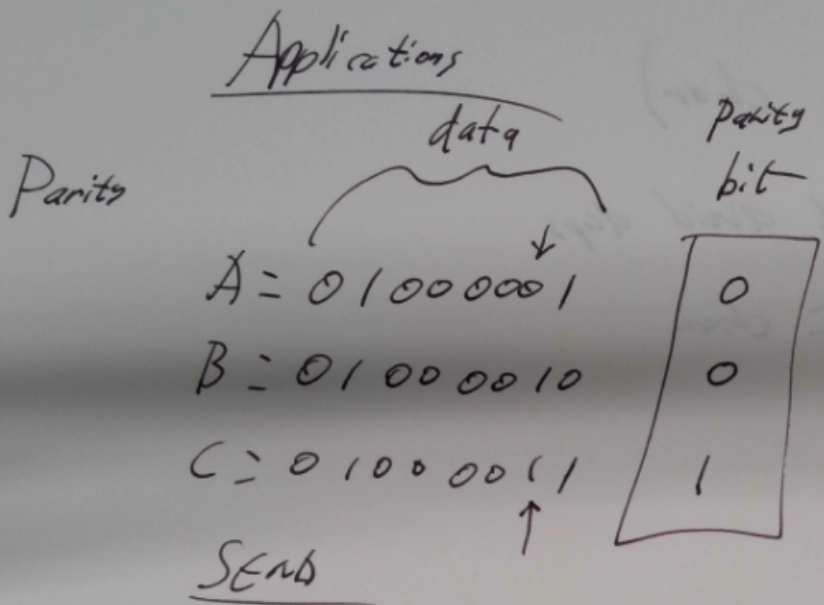 Applications
data
Parity
bit
Parity
A = 01000001 0
B = 01000010 0
C = 01000011 1
SEND